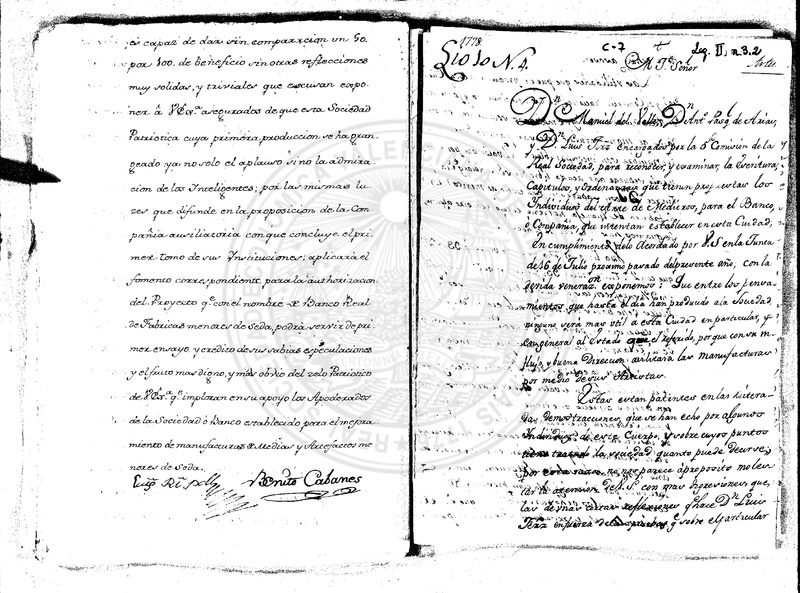 es capaz de dar sin comparacion un 50.
por 100. de beneficio sin otras reflecciones
muy solidas, y triviales que escusan expo-
ner â VEx.ª asegurados de que esta Sociedad
Patriotica cuya primera produccion se ha gran
geado ya no solo el aplauso sino la admira
cion de los Inteligentes; por las mismas lu
zes que difunde en la proposicion de la Com
pañia auxiliatoria con que concluye el pri
mer tomo de sus Instituciones; aplicará el
fomento correspondiente, para la authorizacion
del Proyecto q.e con el nombre de Banco Real
de Fabricas menores de Seda, podrá servir de pri
mer ensayo y credito de sus sabias especulaciones
y el fruto mas digno, y mas obvio del zelo Patriotico
de VEx.ª q.e imploran en su apoyo los Apoderados
de la Sociedad ò Banco establecido para el mejora
miento de manufacturas de Medias y Artefactos me
nores de Seda.
Benito Cabanes
1778
C-7
Leg. II, n. 3. 2
N. 4.
M. Y.e Señor
Artes
Dn Manuel del Valle, Dn Ant.o Pasq.l de Arias,
y Dn Luis encargados por la 5.ª Comision de la
Real Sociedad, para reconocer, y examinar, la Escritura,
Capitulos, y Ordenanzas que tienen proyectas los
Individuos del Arte de Medieros, para el Banco,
o Compañia, que intentan establecer en esta Ciudad;
En cumplimiento de lo Acordado por V.S. en la Junta
de 16 de Julio proximo pasado del presente año, con la
devida veneraz.n exponemos: Que entre los pensa
mientos que hasta el dia han producido a la Sociedad
ninguno será mas util a esta Ciudad en particular, y
en general al Estado que el referido, porque con su in
flujo y buena Direccion auxiliará las manufacturas
por medio de sus Artistas.
Estas estan patentes en las reitera
das demostraciones, que se han echo por algunos
Individuos de este Cuerpo, y sobre cuyos puntos
tiene la Sociedad quanto puede decirse,
por no nos parece à proposito moles
tar la atencion de V.S. con mas expresiones que
las demas reflexiones q.e hace Dn Luis
en fuerza de las pruebas q.e sobre el particular